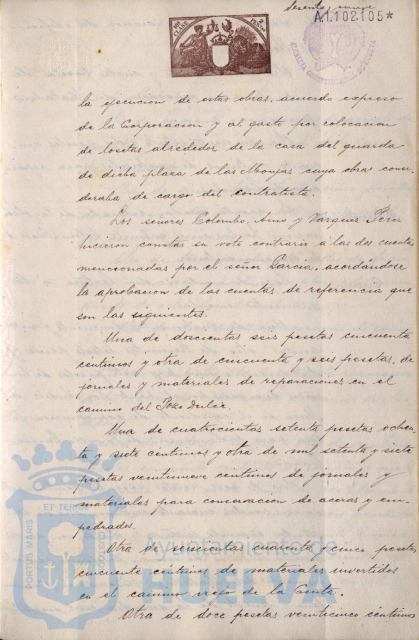 A.1.102.105*
la ejecucion de estas obras, acuerdo expreso
de la Corporacion y al gasto por colocacion
de losetas alrededor de la casa del guarda
de dicha plaza de las Monjas cuya obras consi-
deraba de cargo del contratista.
Los señores Colombo, y Vazquez Perez
hicieron constar su voto contrario á las dos cuentas
mencionadas por el señor Garcia, acordándose
la aprobacion de las cuentas de referencia que
son las siguientes.
Una de doscientas seis pesetas cincuenta
centimos y otra de cincuenta y seis pesetas, de
jornales y materiales de reparaciones en el
camino del Pozo dulce.
Una de cuatrocientas setenta pesetas ochen-
ta y siete centimos y otra de mil setenta y siete
pesetas veintinueve centimos de jornales y
materiales para conservacion de aceras y em-
pedrados.
Otra de seiscientas cuarenta y cinco pesetas
cincuenta centimos de materiales invertidos
en el camino viejo de la Cinta.
Otra de doce pesetas veinticinco centimos
PORTUS MARIS
ET TERRAE CUSTODIA
Ayuntamiento de
HUELVA